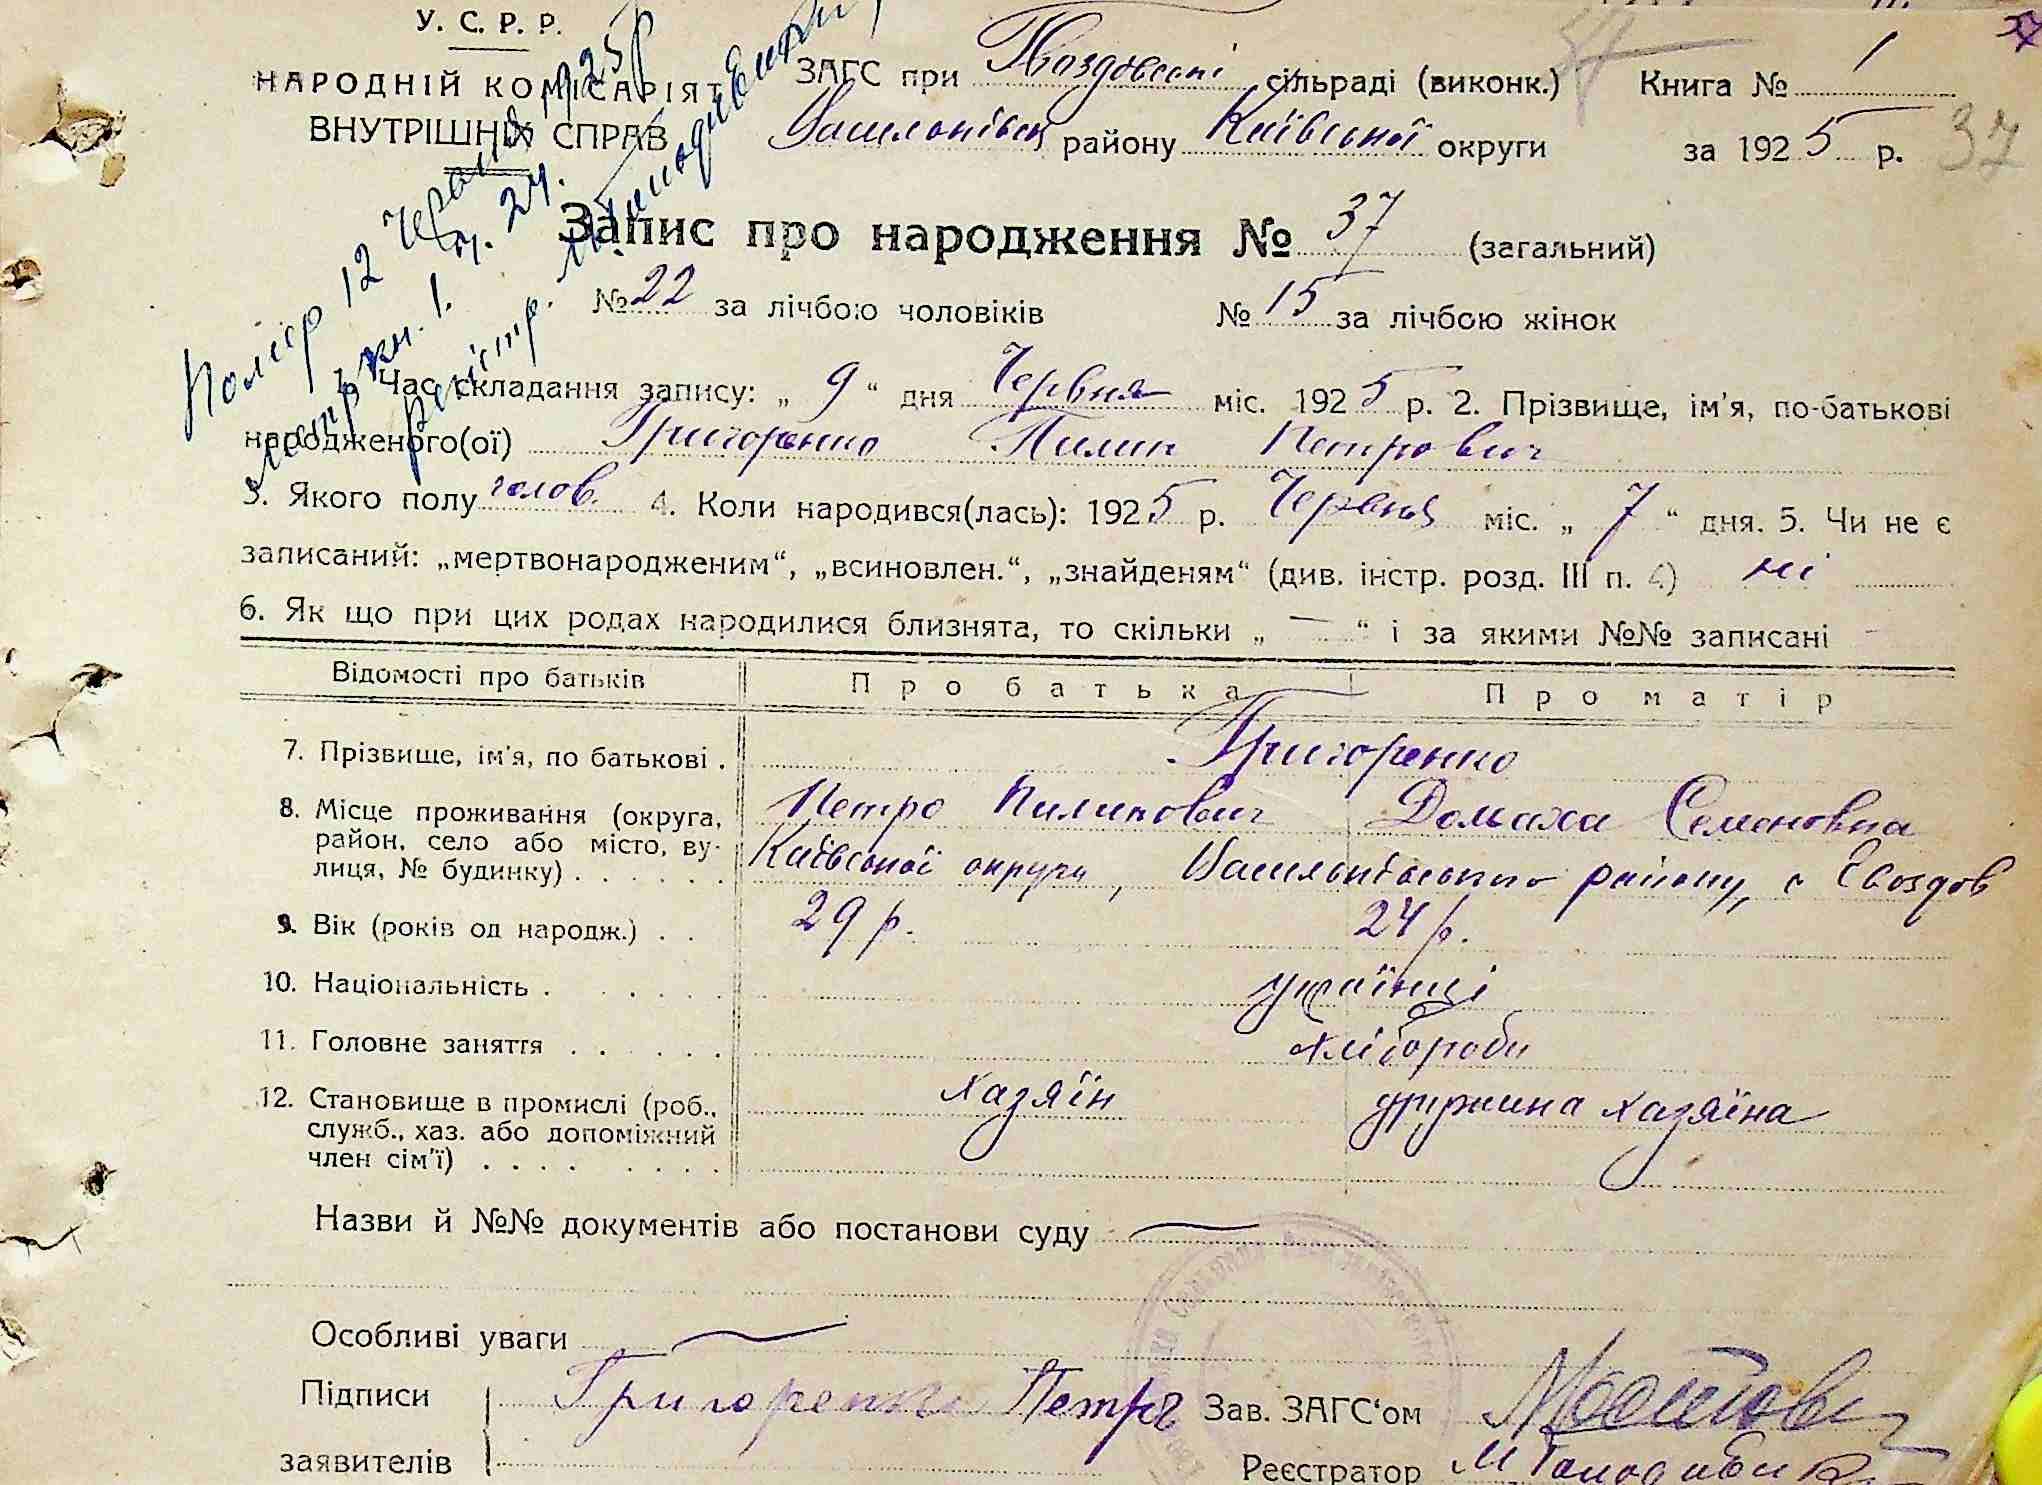 У. С. Р. Р.
НАРОДНІЙ КОМІСАРІЯТ
ВНУТРІШНІХ СПРАВ
ЗАГС при Гвоздовській сільраді (виконк.) Книга № 1
Васильківськ району Київської округи за 1925 р. 37
Запис про народження № 37 (загальний)
№ 22 за лічбою чоловіків № 15 за лічбою жінок
Помер 12 червня 1925 р
кн. 1. ч. 24.
реєстр.
1. Час складання запису: „ 9 “ дня Червня міс. 1925 р. 2. Прізвище, ім'я, по-батькові
народженого(ої) Григоренко Пилип Петрович
3. Якого полу чолов. 4. Коли народився(лась): 1925 р. Червня міс. „ 7 “ дня. 5. Чи не є
записаний: „мертвонародженим“, „всиновлен.“, „знайденям“ (див. інстр. розд. III п. 4) ні
6. Як що при цих родах народилися близнята, то скільки „ — “ і за якими №№ записані
Відомості про батьків Про батька Про матір
7. Прізвище, ім'я, по батькові . Григоренко
Петро Пилипович Домаха Семеновна
8. Місце проживання (округа,
район, село або місто, ву-
лиця, № будинку) . . . . . .
Київської округи, Васильківського району, с Гвоздов
9. Вік (років од народж.) . . 29 р. 24 р.
10. Національність . . . . . українці
11. Головне заняття . . . . . хлібороби
12. Становище в промислі (роб.,
служб., хаз. або допоміжний
член сім'ї) . . . . . . . .
хазяїн дружина хазяїна
Назви й №№ документів або постанови суду —
Особливі уваги —
Підписи Григоренко Петро Зав. ЗАГС‘ом
заявителів Реєстратор М